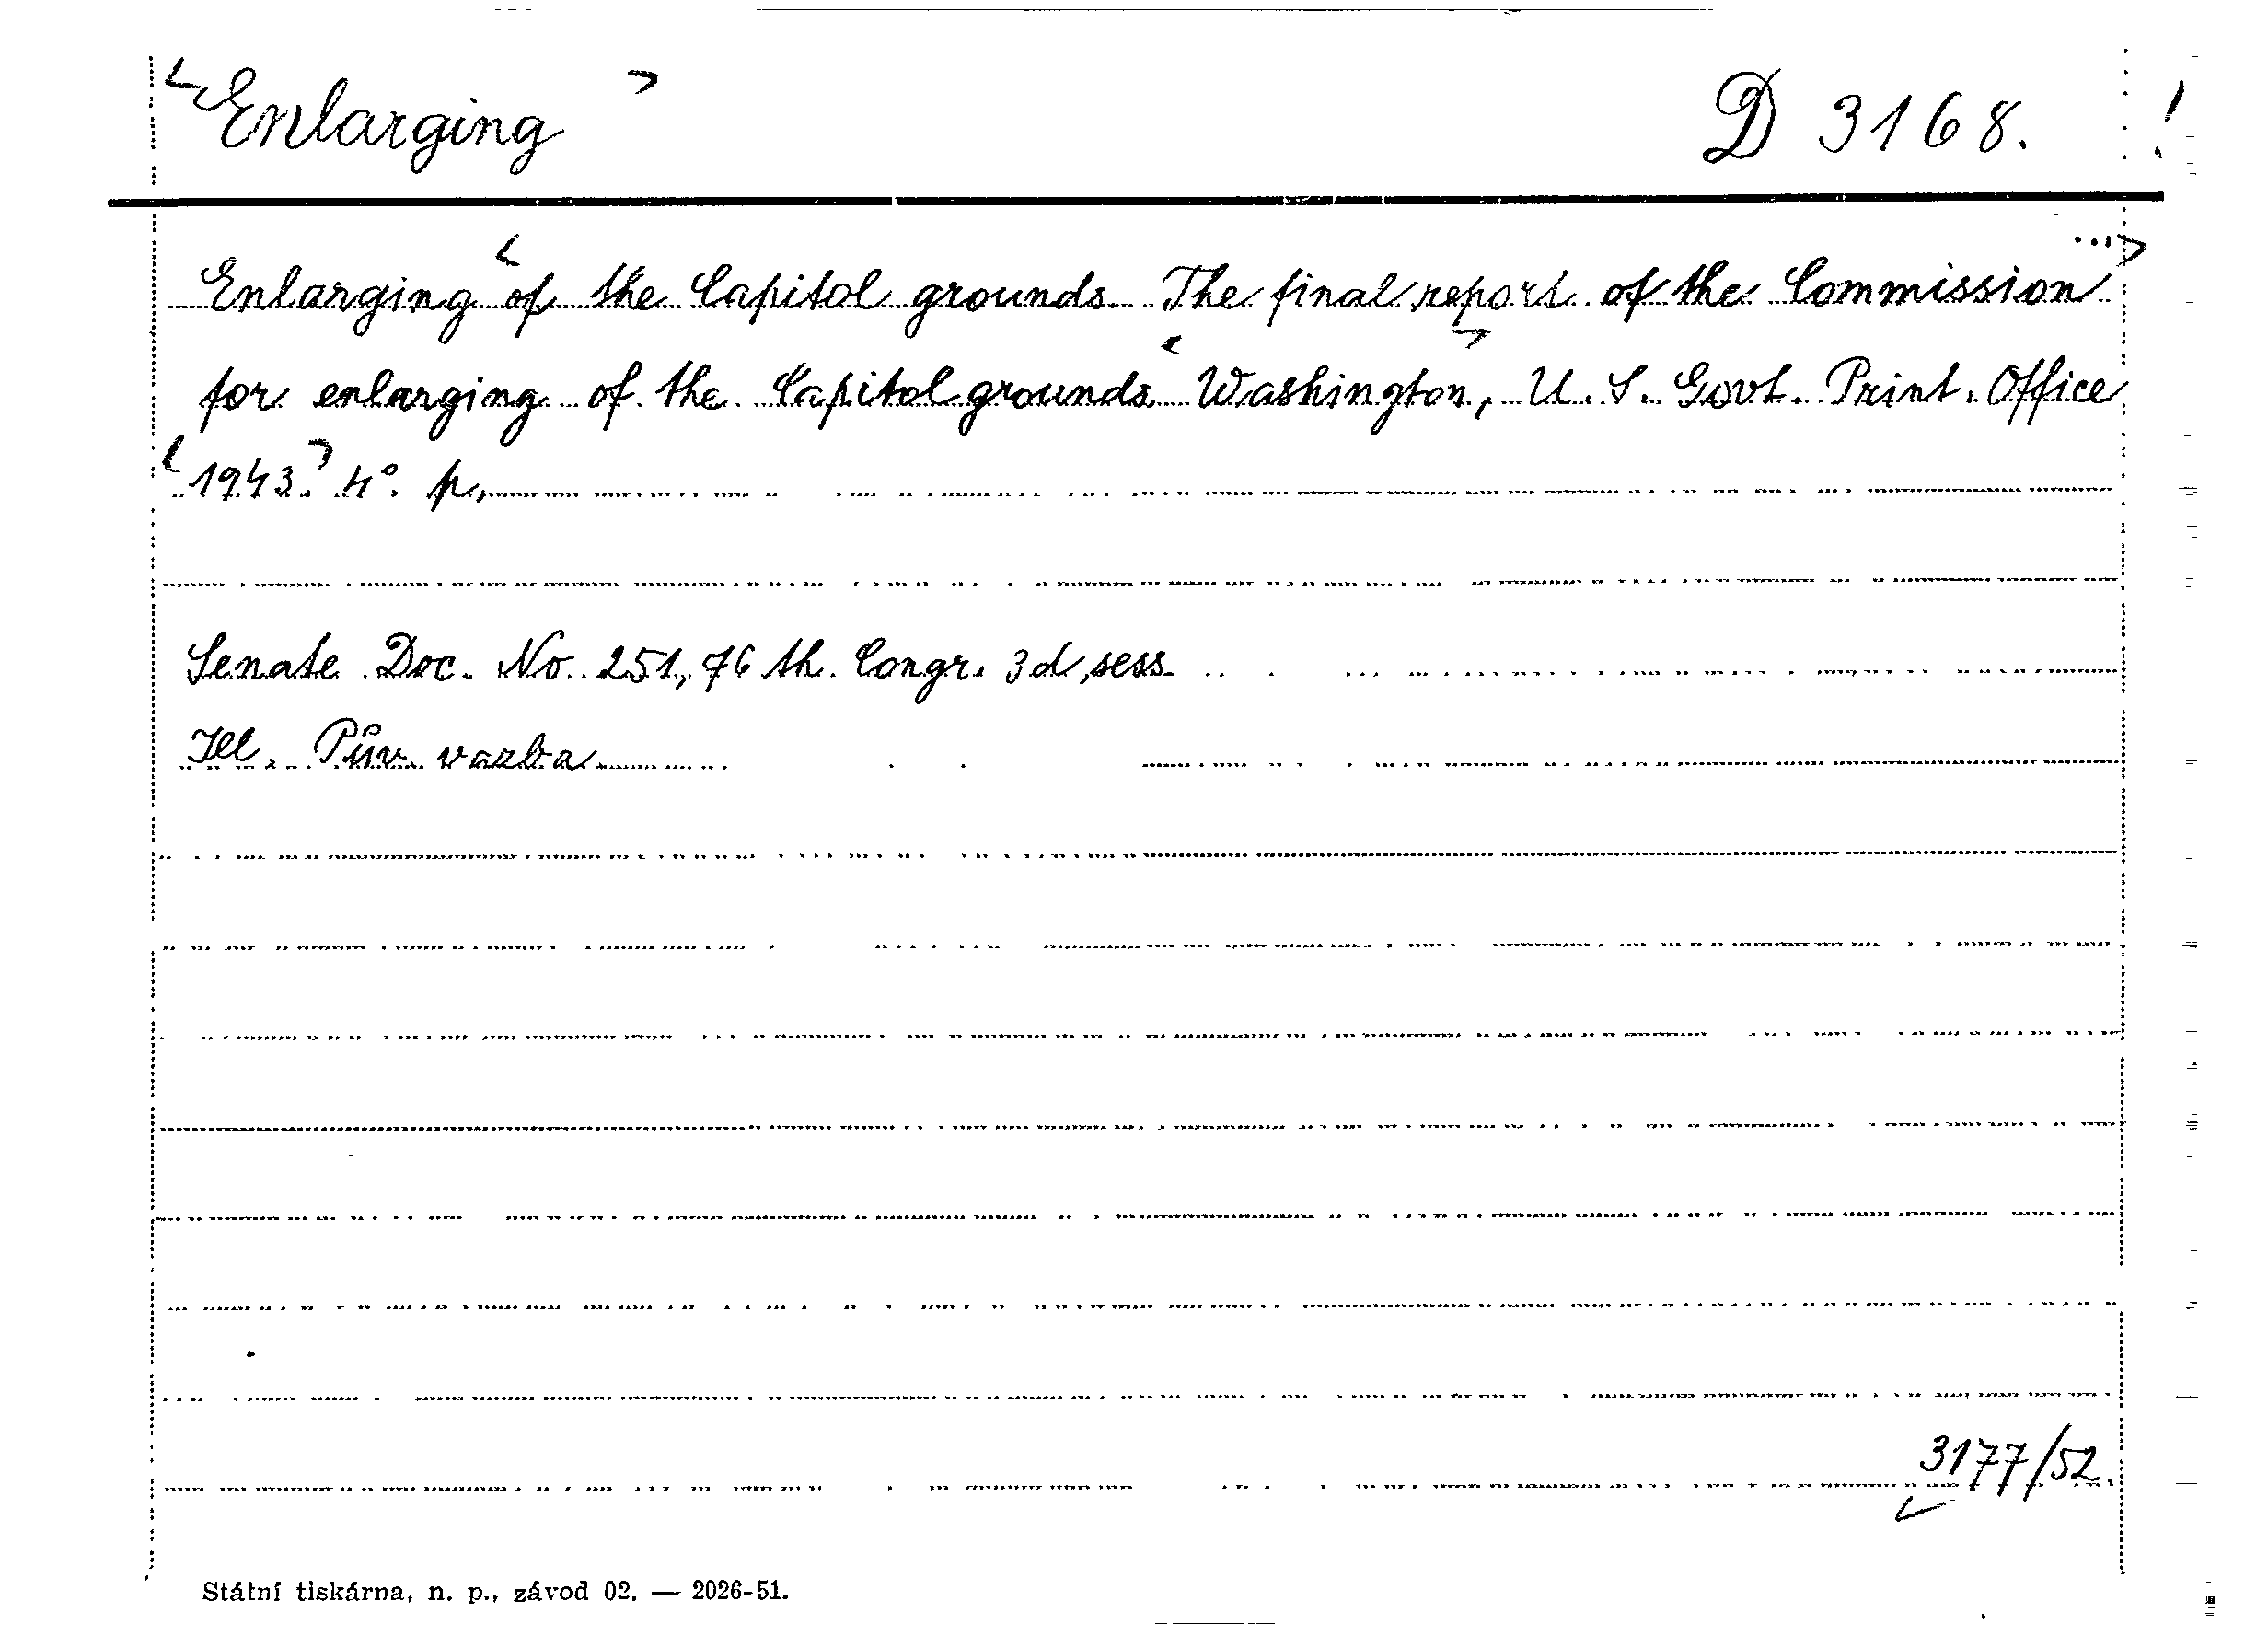 <Enlarging> D 3168. !
Enlarging <of the Capitol grounds. The final report of the Commission ...>
for enlarging of the Capitol grounds. <Washington>, U. S. Govt. Print. Office
<1943.> 4°. p.
Senate Doc. No. 251, 76 th. Congr. 3d, sess.
Ill. Pův. vazba
3177/52.
Státní tiskárna, n. p., závod 02. — 2026-51.